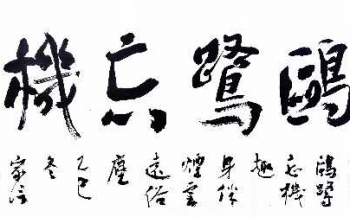 鷗鷺忘機
鷗鷺
忘機
趣
身伴
煙雲
遠俗
塵
己巳
冬
家